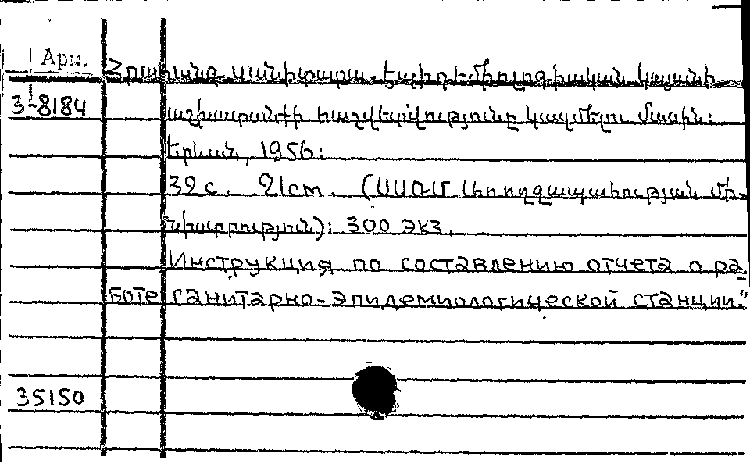 Арм.
Հրահանգ սանիտարա-էպիդէմիոլոգիական կայանի
3-8184
աշխատանքի հաշվետվությունը կազմելու մասին:
Երևան, 1956:
32 с. 21cm. (ՍՍՌՄ Առողջապահության մի-
նիստրություն): 300 экз.
Инструкция по составлению отчета о ра-
боте санитарно-эпидемиологической станции."
35150